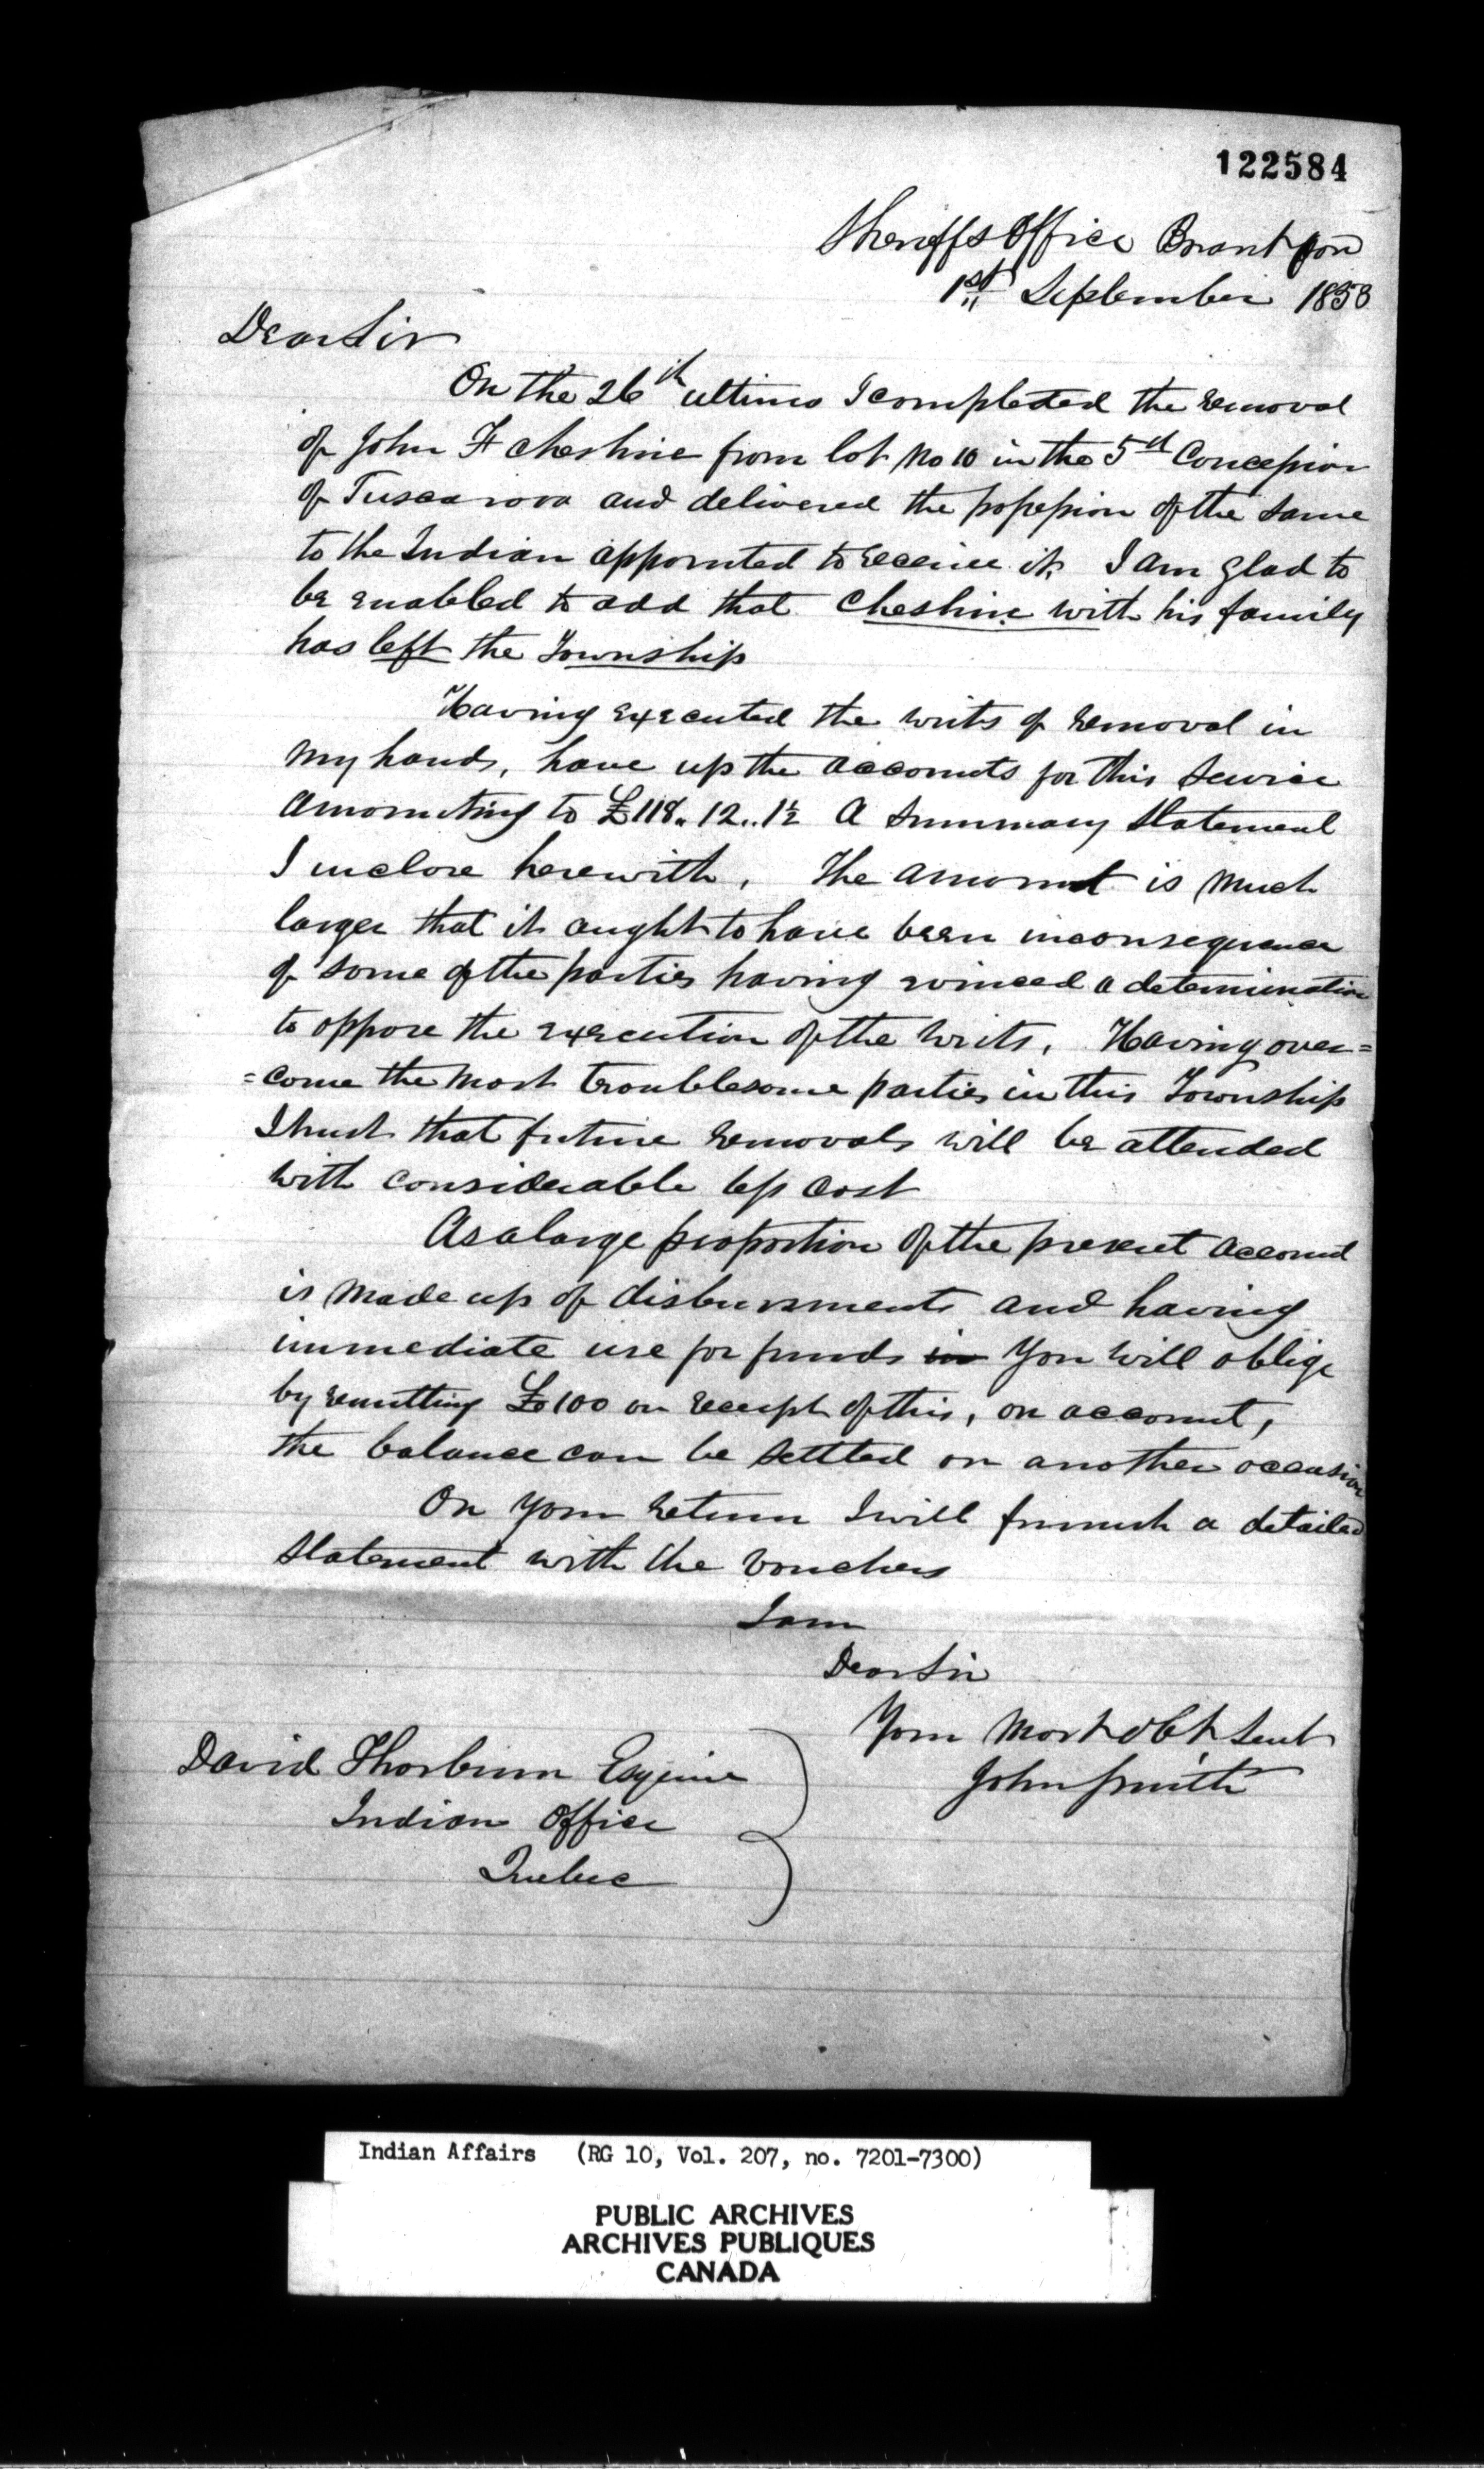 122584
Sheriffs Office Brantford
1st September 1853
Dear Sir
On the 26th ultimo I completed the removal
of John F Cheshire from lot No 10 in the 5th Concession
of Tuscarora and delivered the possession of the same
to the Indian appointed to receive it. I am glad to
be enabled to add that Cheshire with his family
has left the Township
Having executed the writs of removal in
my hands, have up the accounts for this service
amounting to £118.. 12.. 1½ A summary statement
I inclose herewith. The amount is much
larger that it aught to have been inconsequence
of some of the parties having evinced a determination
to oppose the execution of the writs. Having over=
=come the most troublesome parties in this Township
I trust that future removals will be attended
with considerable less cost
As a large proportion of the present account
is made up of disbursments and having
immediate use for funds in you will oblige
by remitting £100 on receipt of this, on account,
the balance can be settled on another occasion
On your return I will furnish a detailed
statement with the vouchers
I am
Dear Sir
Your Most obt Servt
John Smith
David Thorburn Esquire
Indian Office
Quebec
Indian Affairs (RG 10, Vol. 207, no. 7201-7300)
PUBLIC ARCHIVES
ARCHIVES PUBLIQUES
CANADA